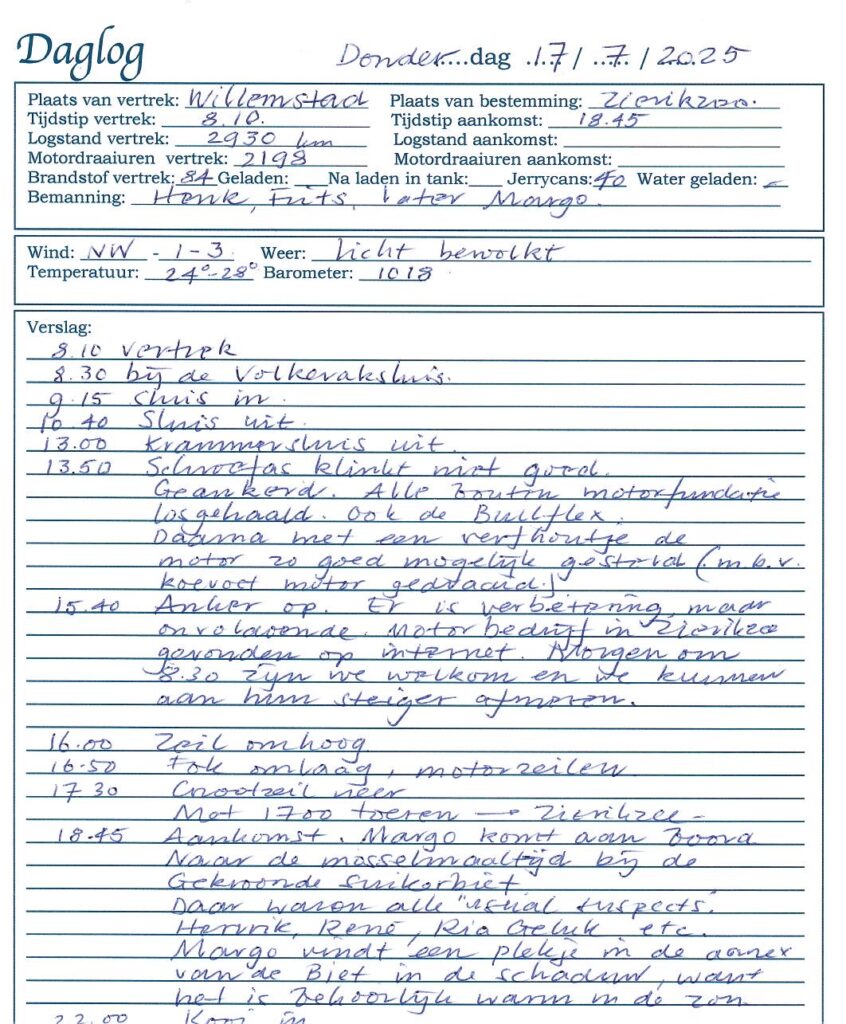 Daglog Donder....dag .17/ ..7. / 2025
Plaats van vertrek: Willemstad Plaats van bestemming: Zierikzee.
Tijdstip vertrek: 8.10. Tijdstip aankomst: 18.45
Logstand vertrek: 2930 km Logstand aankomst:
Motordraaiuren vertrek: 2198 Motordraaiuren aankomst:
Brandstof vertrek: 84 Geladen: Na laden in tank: Jerrycans: 40 Water geladen: -
Bemanning: Henk, Frits, later Margo.
Wind: NW - 1-3 Weer: licht bewolkt
Temperatuur: 24°-28° Barometer: 1018
Verslag:
8.10 vertrek
8.30 bij de Volkeraksluis.
9.15 sluis in.
10.40 Sluis uit.
13.00 Krammersluis uit.
13.50 Schroefas klinkt niet goed.
Geankerd. Alle bouten motorfundatie
losgehaald. Ook de Bullflex.
Daarna met een verfhoutje de
motor zo goed mogelijk gesteld (m.b.v.
koevoet motor gedraaid.)
15.40 Anker op. Er is verbetering, maar
onvoldoende. Motorbedrijf in Zierikzee
gevonden op internet. Morgen om
8.30 zijn we welkom en we kunnen
aan hun steiger afmeren.
16.00 Zeil omhoog
16.50 Fok omlaag, motorzeilen
17 30 Grootzeil neer
Met 1700 toeren → Zierikzee -
18.45 Aankomst. Margo komt aan boord
Naar de mosselmaaltijd bij de
Gekroonde suikerbiet
Daar waren alle "usual suspects".
Henrik, René, Ria Geluk etc.
Margo vindt een plekje in de annex
van de Biet in de schaduw, want
het is behoorlijk warm in de zon.
22.00 Kooi in